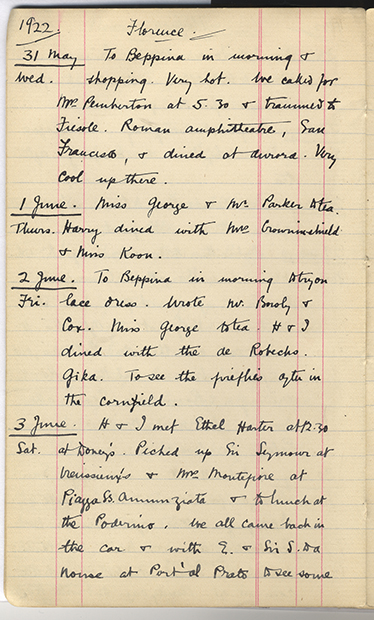 1922 Florence.
31 May To Beppina in morning &
Wed. shopping. Very hot. We called for
Mrs Pemberton at 5.30 & trammed to
Fiesole. Roman amphitheatre, San
Francisco, & dined at Aurora. Very
cool up there.
1 June. Miss George & Mr Parker to tea.
Thurs. Harry dined with Mrs Crowninshield
& Miss Koon.
2 June. To Beppina in morning to try on
Fri. lace dress. Wrote W. &
Cox. Miss George to tea. H & I
dined with the de Robecks.
Gika. To see the fireflies after in
the cornfield.
3 June. H & I met Ethel Harter at 12.30
Sat. at Doney's. Picked up Sir Seymour at
& Mrs Montefiore at
Piazza SS. Annunziata & to lunch at
the Poderino. We all came back in
the car & with E. & Sir S. to a
house at Port'al Prato to see some